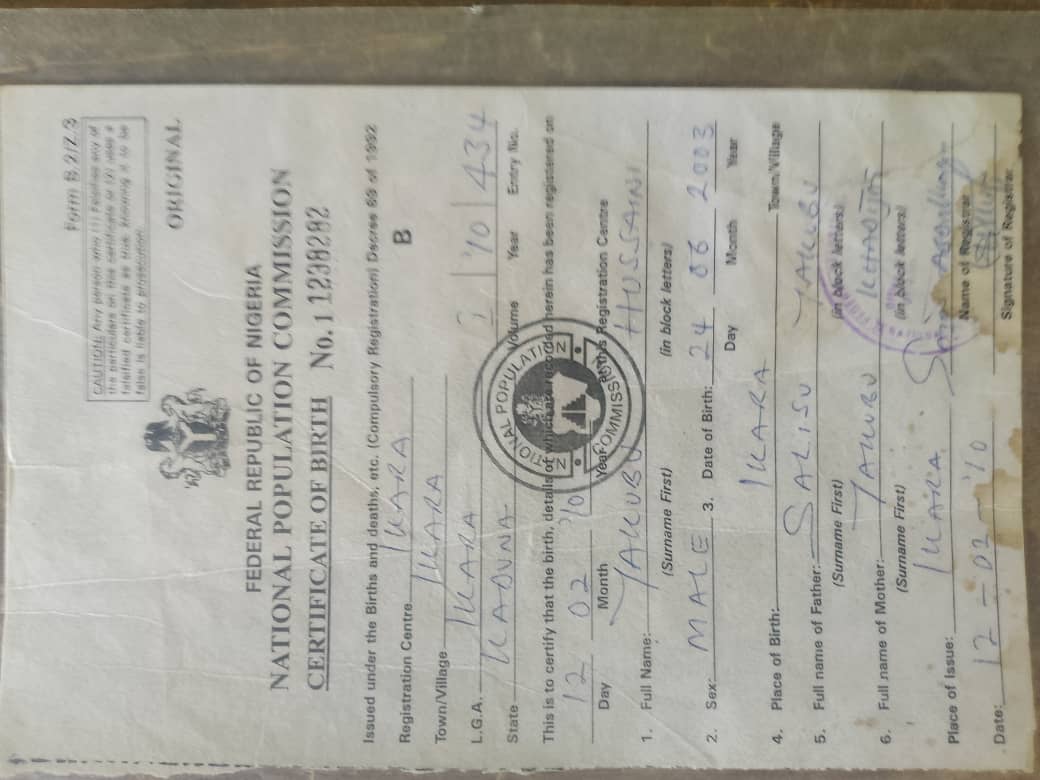 Form B 2/Z.3
CAUTION: Any person who (1) Falsifies any of
the particulars on this certificate or (2) uses a
falsified certificate as true, knowing it to be
false is liable to prosecution.
ORIGINAL
FEDERAL REPUBLIC OF NIGERIA
NATIONAL POPULATION COMMISSION
CERTIFICATE OF BIRTH No. 1 1238282
Issued under the Births and deaths, etc. (Compulsory Registration) Decree 69 of 1992
B
Registration Centre IKARA
Town/Village IKARA
L.G.A. IKARA '10 434
State KADUNA Volume Year Entry No.
NATIONAL POPULATION COMMISSION
This is to certify that the birth, details of which are recorded herein has been registered on
12 02 '10
Day Month Year at this Registration Centre
1. Full Name: YAKUBU HUSSAINI
(Surname First) (in block letters)
2. Sex: MALE 3. Date of Birth: 24 06 2003
Day Month Year
4. Place of Birth: IKARA Town/Village
5. Full name of Father: SALISU YAKUBU
(Surname First) (in block letters)
6. Full name of Mother: YAKUBU KHADIJA
(Surname First) (in block letters)
Place of Issue: IKARA
Name of Registrar
Date: 12-02-'10
Signature of Registrar